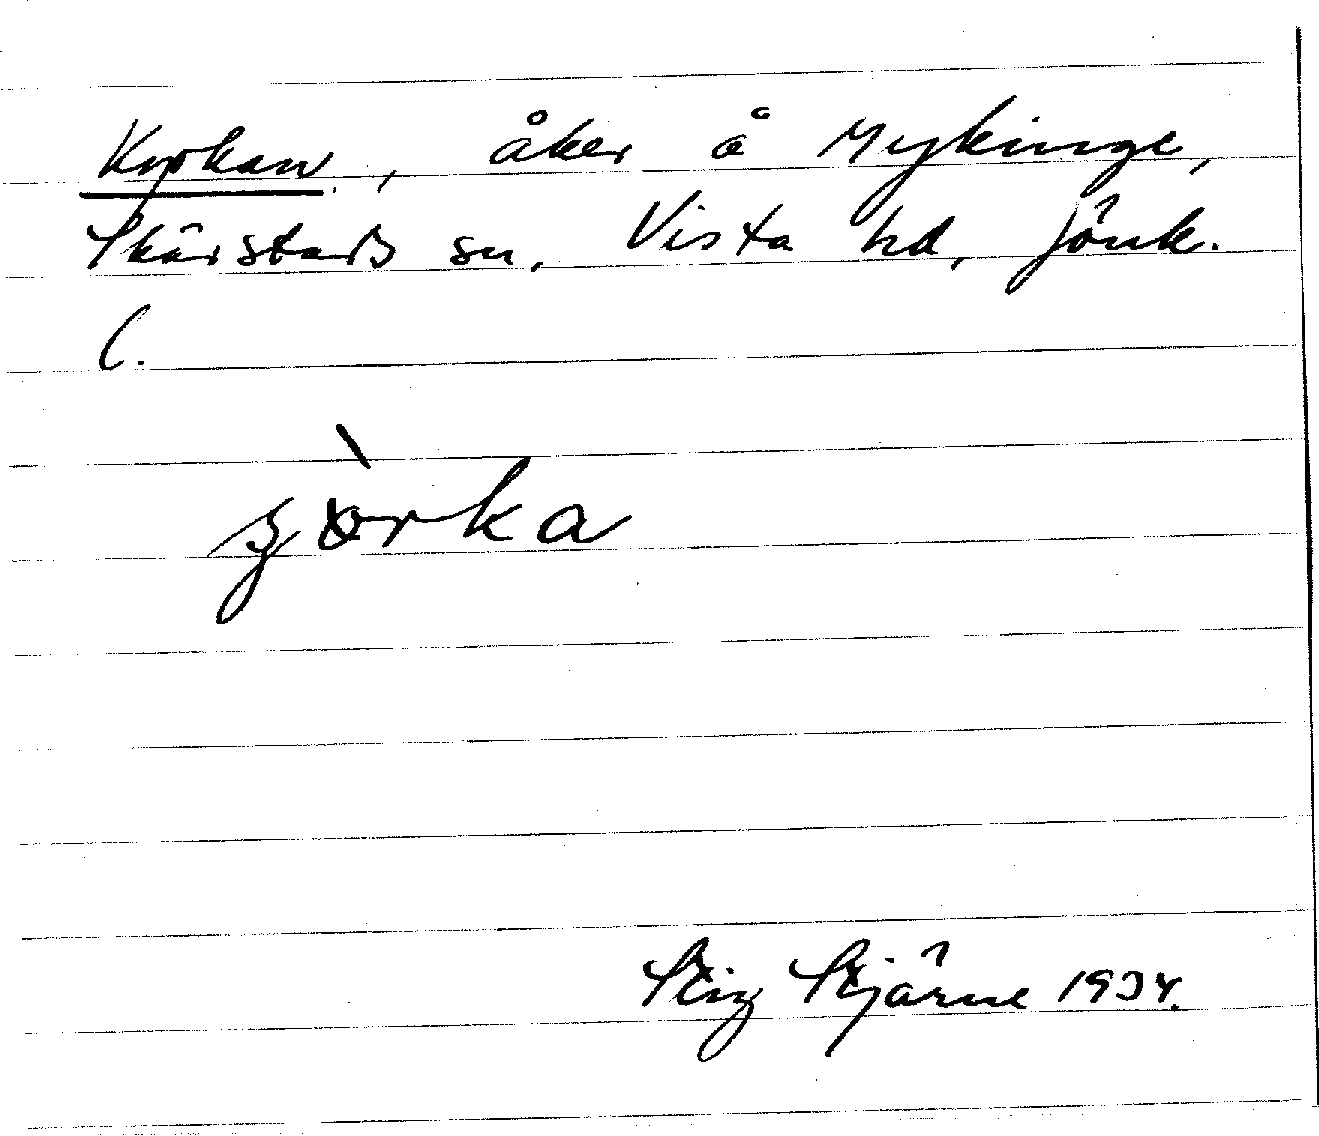 Kyrkan, åker å Mykinge,
Skärstads sn, Vista hd, Jönk.
l.
Stig Stjärne 1934.